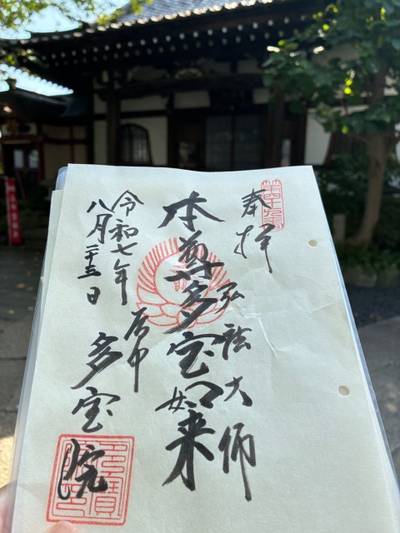 奉拝
弘法大師
本尊多宝如来
谷中
多宝院
令和七年
八月二十三日